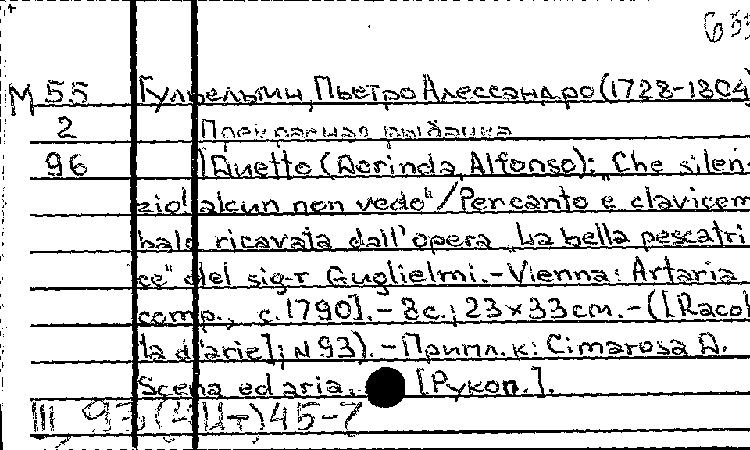 655
М 55 Гульельми, Пьетро Алессандро (1728-1804)
2 Прекрасная рыбачка
96 [Duetto (Dorinda, Alfonso): „Che silen-
zio! alcun non vedo"/Per canto e clavicem
balo ricavata dall'opera „La bella pescatri
ce" del sig-r Guglielmi.-Vienna: Artaria
comp., c.1790].-8c.; 23×33cm.-([Racol
la d'arie]; N93).-Прилл.к: Cimarosa D.
Scena ed aria. [Рукоп.].
III 93(4Ит)45-7